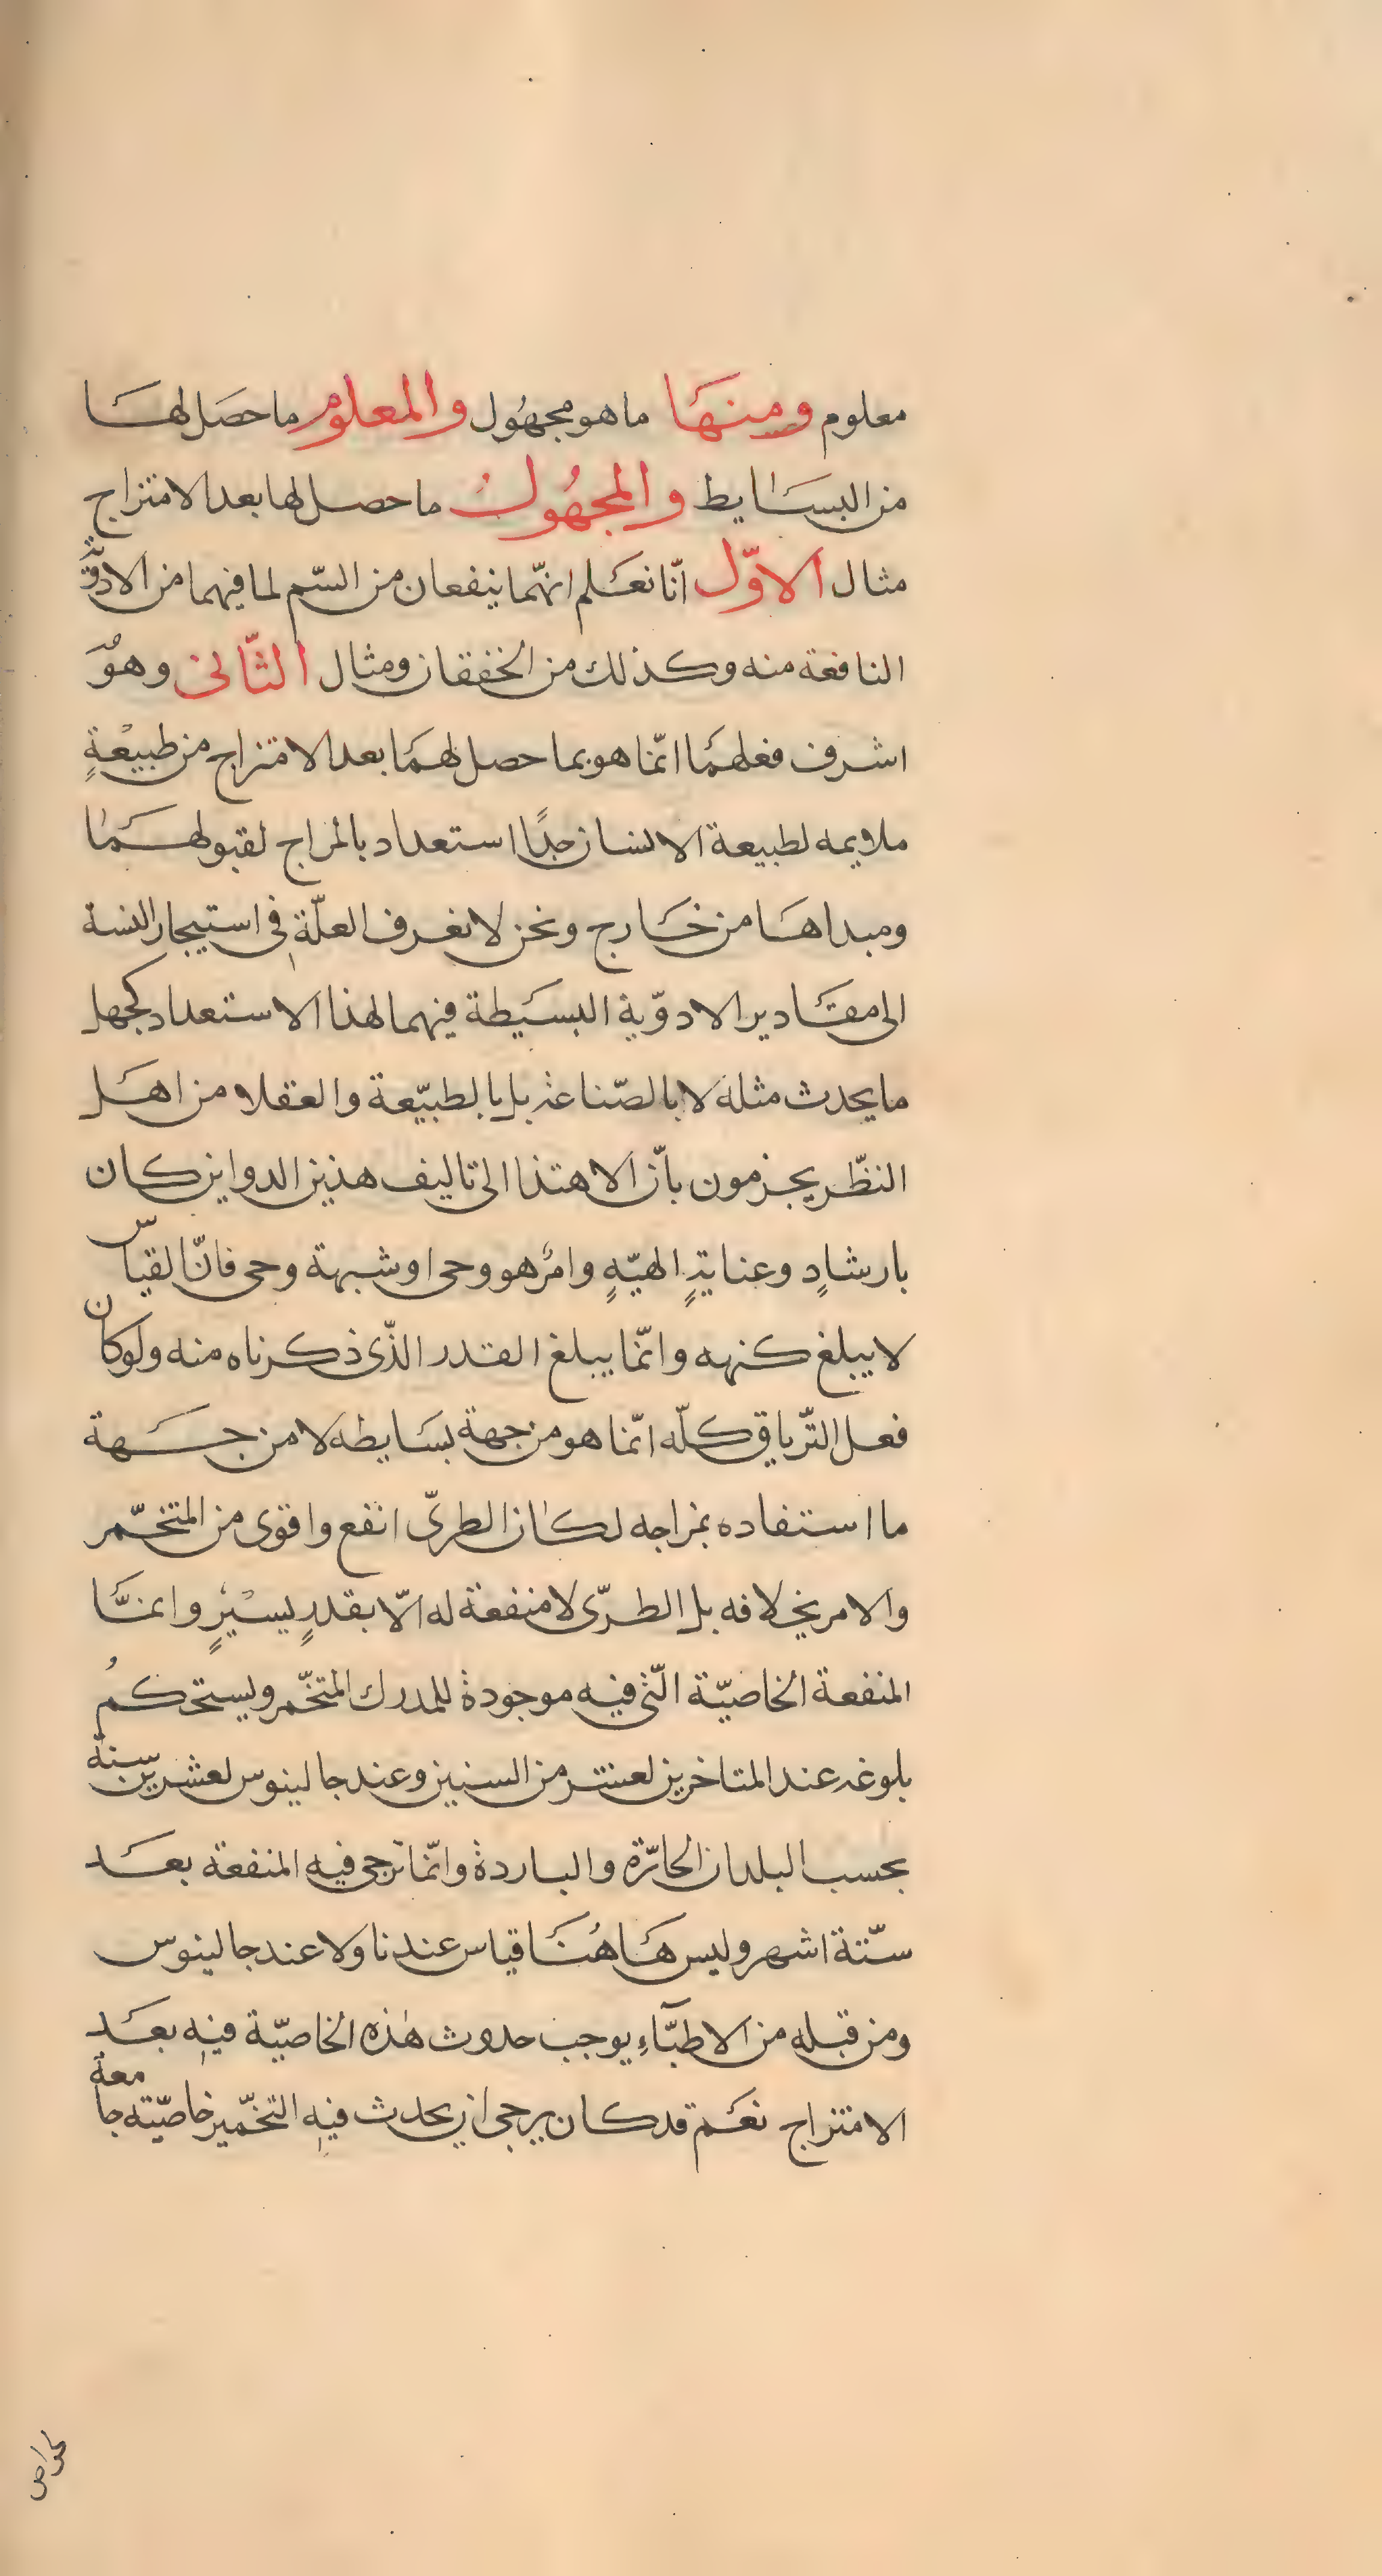 معلوم ومنهَا ما هو مجهُول والمعلوم ما حصَل لهَا
من البسَايط والمجهُولُ ما حصل لها بعد الامتزاج
مثال الاوّل انّا نعَلم انهّما ينفعان من السّم لما فيهما من الادوّية
النافعة منه وكذلك من الخفقان ومثال الثّانى وهوَ
اشرف فعلهمَا انّما هو بما حصل لهمَا بعد الامتزاج من طبيْعةٍ
ملايمه لطبيعة الانسان جدًا استعداد بالمزاج لقبولهمَا
ومبداهَا من خَارج ونحن لا نعرف العلّة فى استيجار النسة
الى مقَادير الادوّية البسَيطة فيهما لهذا الاستعداد كجهل
ما يحدث مثله لا بالصّناعة بل بالطبيّعة والعقلاء من اهَل
النظّر يجزمون بأنّ الاهتذا الى تاليف هذين الدواين كان
بارشادٍ وعنايةٍ الهيّهٍ وامرٌ هو وحى او شبهة وحى فانّ القياس
لا يبلغ كنهه وانّما يبلغ القدر الذّى ذكرناه منه ولو كان
فعل التّرياق كلّه انّما هو من جهة بسَايطه لا من جَهة
ما استفاده بمزاجه لكان الطرىّ انفع واقوى من المتخّمر
والامر بخلافه بل الطرّى لا منفعة له الّا بقدرٍ يسيْرٍ وانمّا
المنفعة الخاصيّة الّتى فيه موجودة للمدرك المتخّمر ويستحكمُ
بلوغه عند المتاخرين لعشر من السنين وعند جالينوس لعشرين سنة
بحسب البلدان الحارّة والباردة وانّما ترجى فيه المنفعة بعَد
ستّة اشهر وليس هَاهُنَا قياس عندنا ولا عند جالينوس
ومن قبله من الاطبّآءِ يوجب حدوث هٰذه الخاصيّة فيهِ بعَد
الامتزاج نعَم قد كان يرجى ان يحدث فيهِ التخمّير خاصّيته جامعة